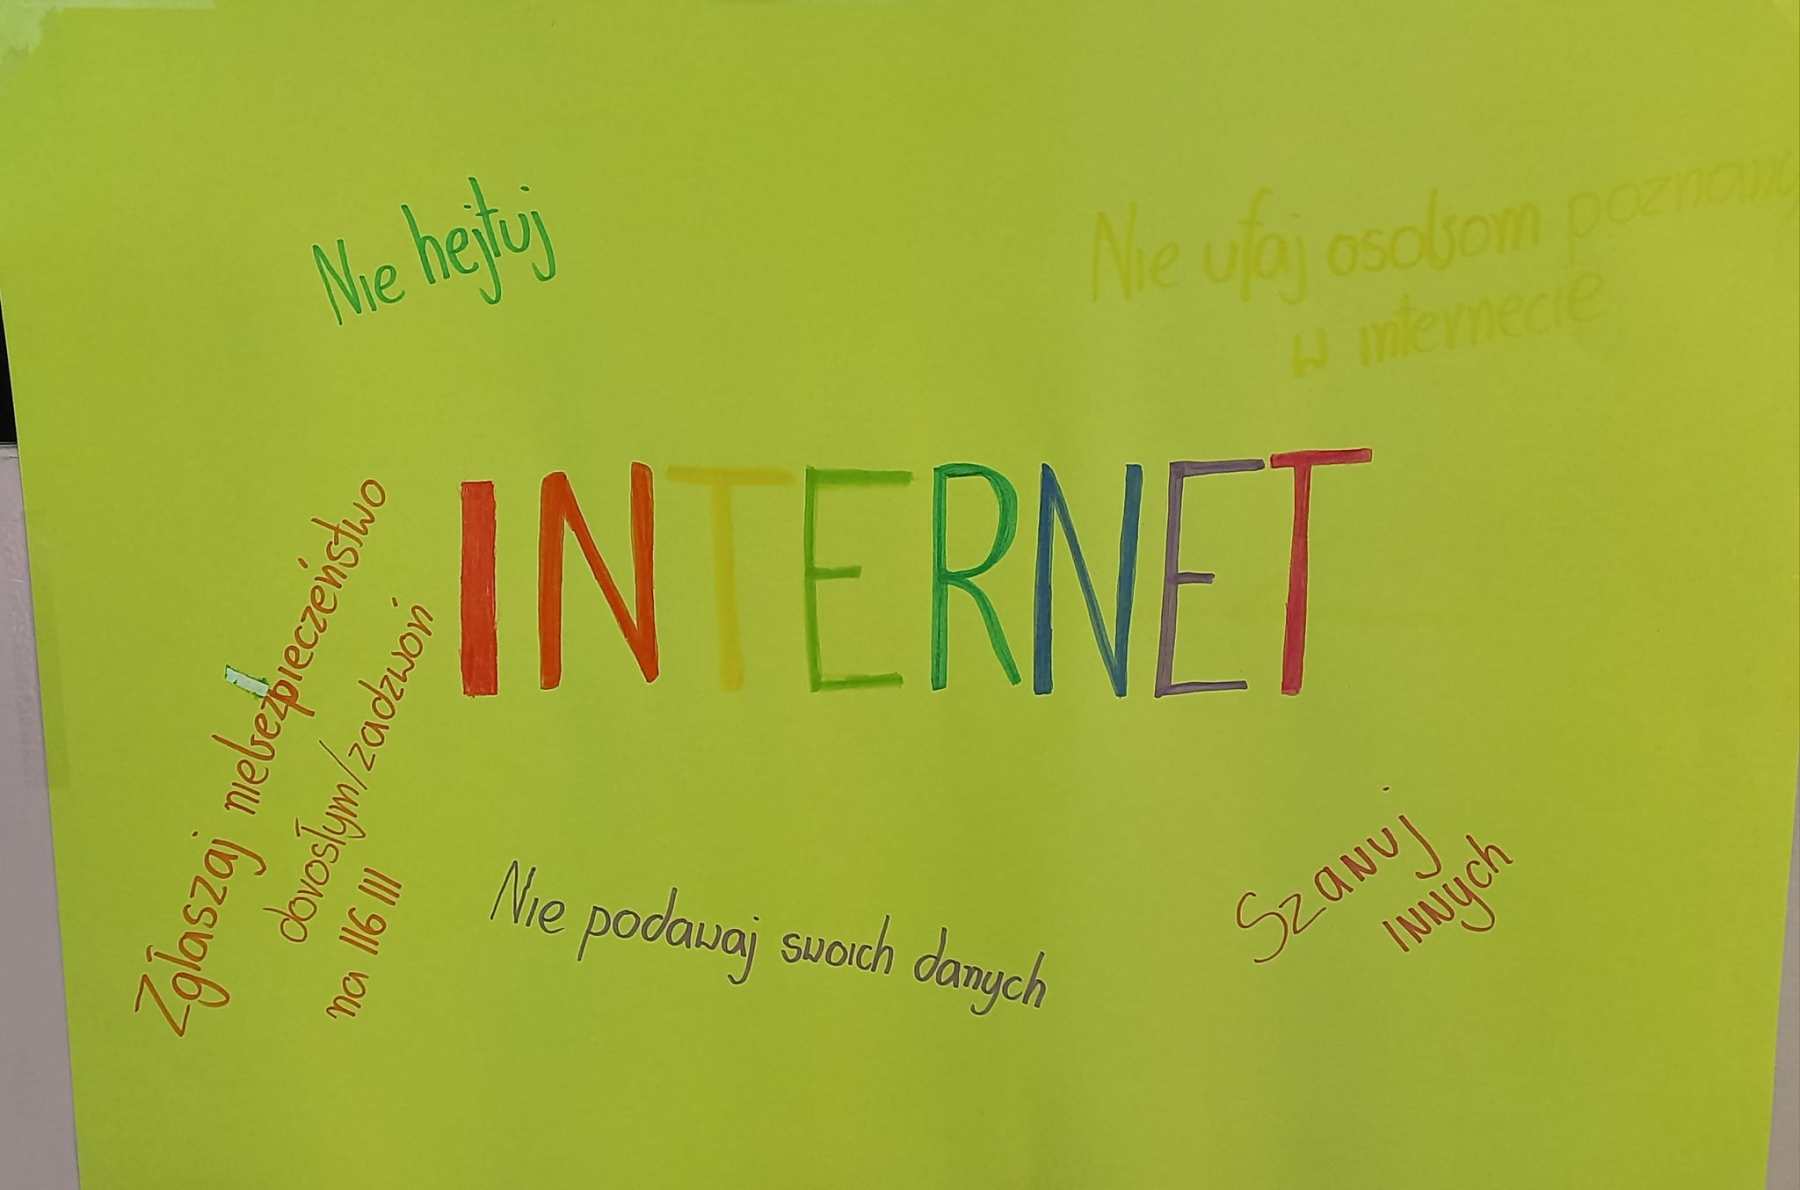 Nie hejtuj
Nie ufaj osobom
w internecie
INTERNET
Zgłaszaj niebezpieczeństwo
dorosłym/zadzwoń
na 116 111
Nie podawaj swoich danych
Szanuj
innych